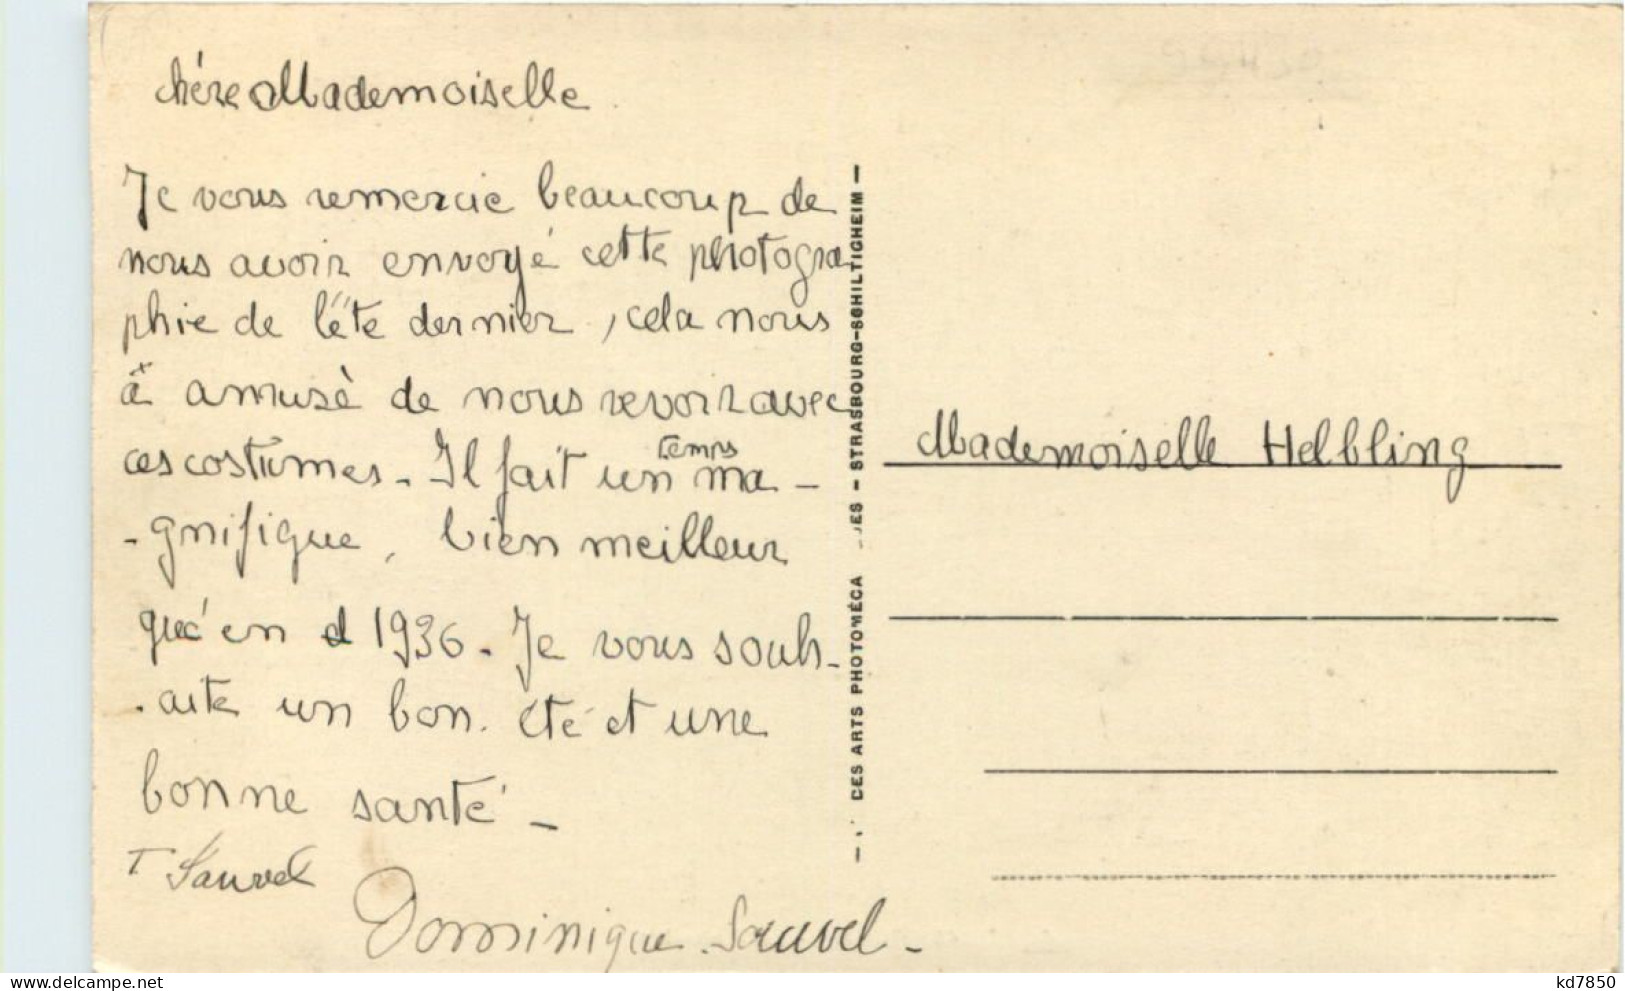 chère Mademoiselle
Je vous remercie beaucoup de
nous avoir envoyé cette photogra
phie de l'été dernier, cela nous
à amusé de nous revoir avec
ces costumes - Il fait un temps ma -
- gnifique, bien meilleur
qu'en 1936 - Je vous souh -
- aite un bon été et une
bonne santé -
T Sauvel
Dominique Sauvel -
CES ARTS PHOTOMÉCA ES - STRASBOURG-SCHILTIGHEIM -
Mademoiselle Helbling
delcampe.net
kd7850